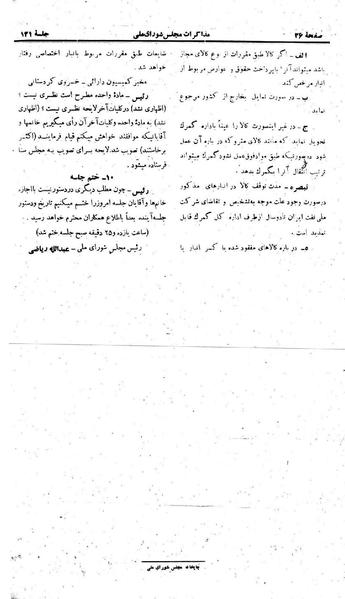 صفحهٔ ۲۶
مذاکرات مجلس شورای ملی
جلسهٔ ۱۳۱
الف - اگر کالا طبق مقررات از نوع کالای مجاز
باشد میتواند آنرا با پرداخت حقوق و عوارض مربوط از
انبار مرخص کند
ب - در صورت تمایل بخارج از کشور مرجوع
نماید
ج - در غیر اینصورت کالا را عیناً باداره گمرک
تحویل نماید که مانند کالای متروکه در باره آن عمل
شود در صورتیکه طبق مواد فوق عمل نشود گمرک میتواند
ترتیب انتقال آنرا بگمرک بدهد.
تبصره - مدت توقف کالا در انبارهای مذکور
در صورت وجود علت موجه به تشخیص و تقاضای شرکت
ملی نفت ایران تا دو سال از طرف اداره کل گمرک قابل
تمدید است.
۵ - در باره کالاهای مفقود شده یا کسر انبار یا
ضایعات طبق مقررات مربوط بانبار اختصاصی رفتار
خواهد شد.
مخبر کمیسیون دارائی - خسروی کردستانی
رئیس - مادهٔ واحده مطرح است نظری نیست؟
(اظهاری نشد) در کلیات آخر لایحه نظری نیست؟ (اظهاری
نشد) به مادهٔ واحده و کلیات آخر آن رأی میگیریم خانمها و
آقایانیکه موافقند خواهش میکنم قیام فرمایند. (اکثر
برخاستند) تصویب شد. لایحه برای تصویب به مجلس سنا
فرستاده میشود.
۱۰- ختم جلسه
رئیس - چون مطلب دیگری در دستور نیست با اجازهٔ
خانمها و آقایان جلسه امروز را ختم میکنیم تاریخ و دستور
جلسهٔ آینده بعداً باطلاع همکاران محترم خواهد رسید.
(ساعت یازده و ۲۵ دقیقه صبح جلسه ختم شد)
رئیس مجلس شورای ملی - عبدالله ریاضی
چاپخانه مجلس شورای ملی